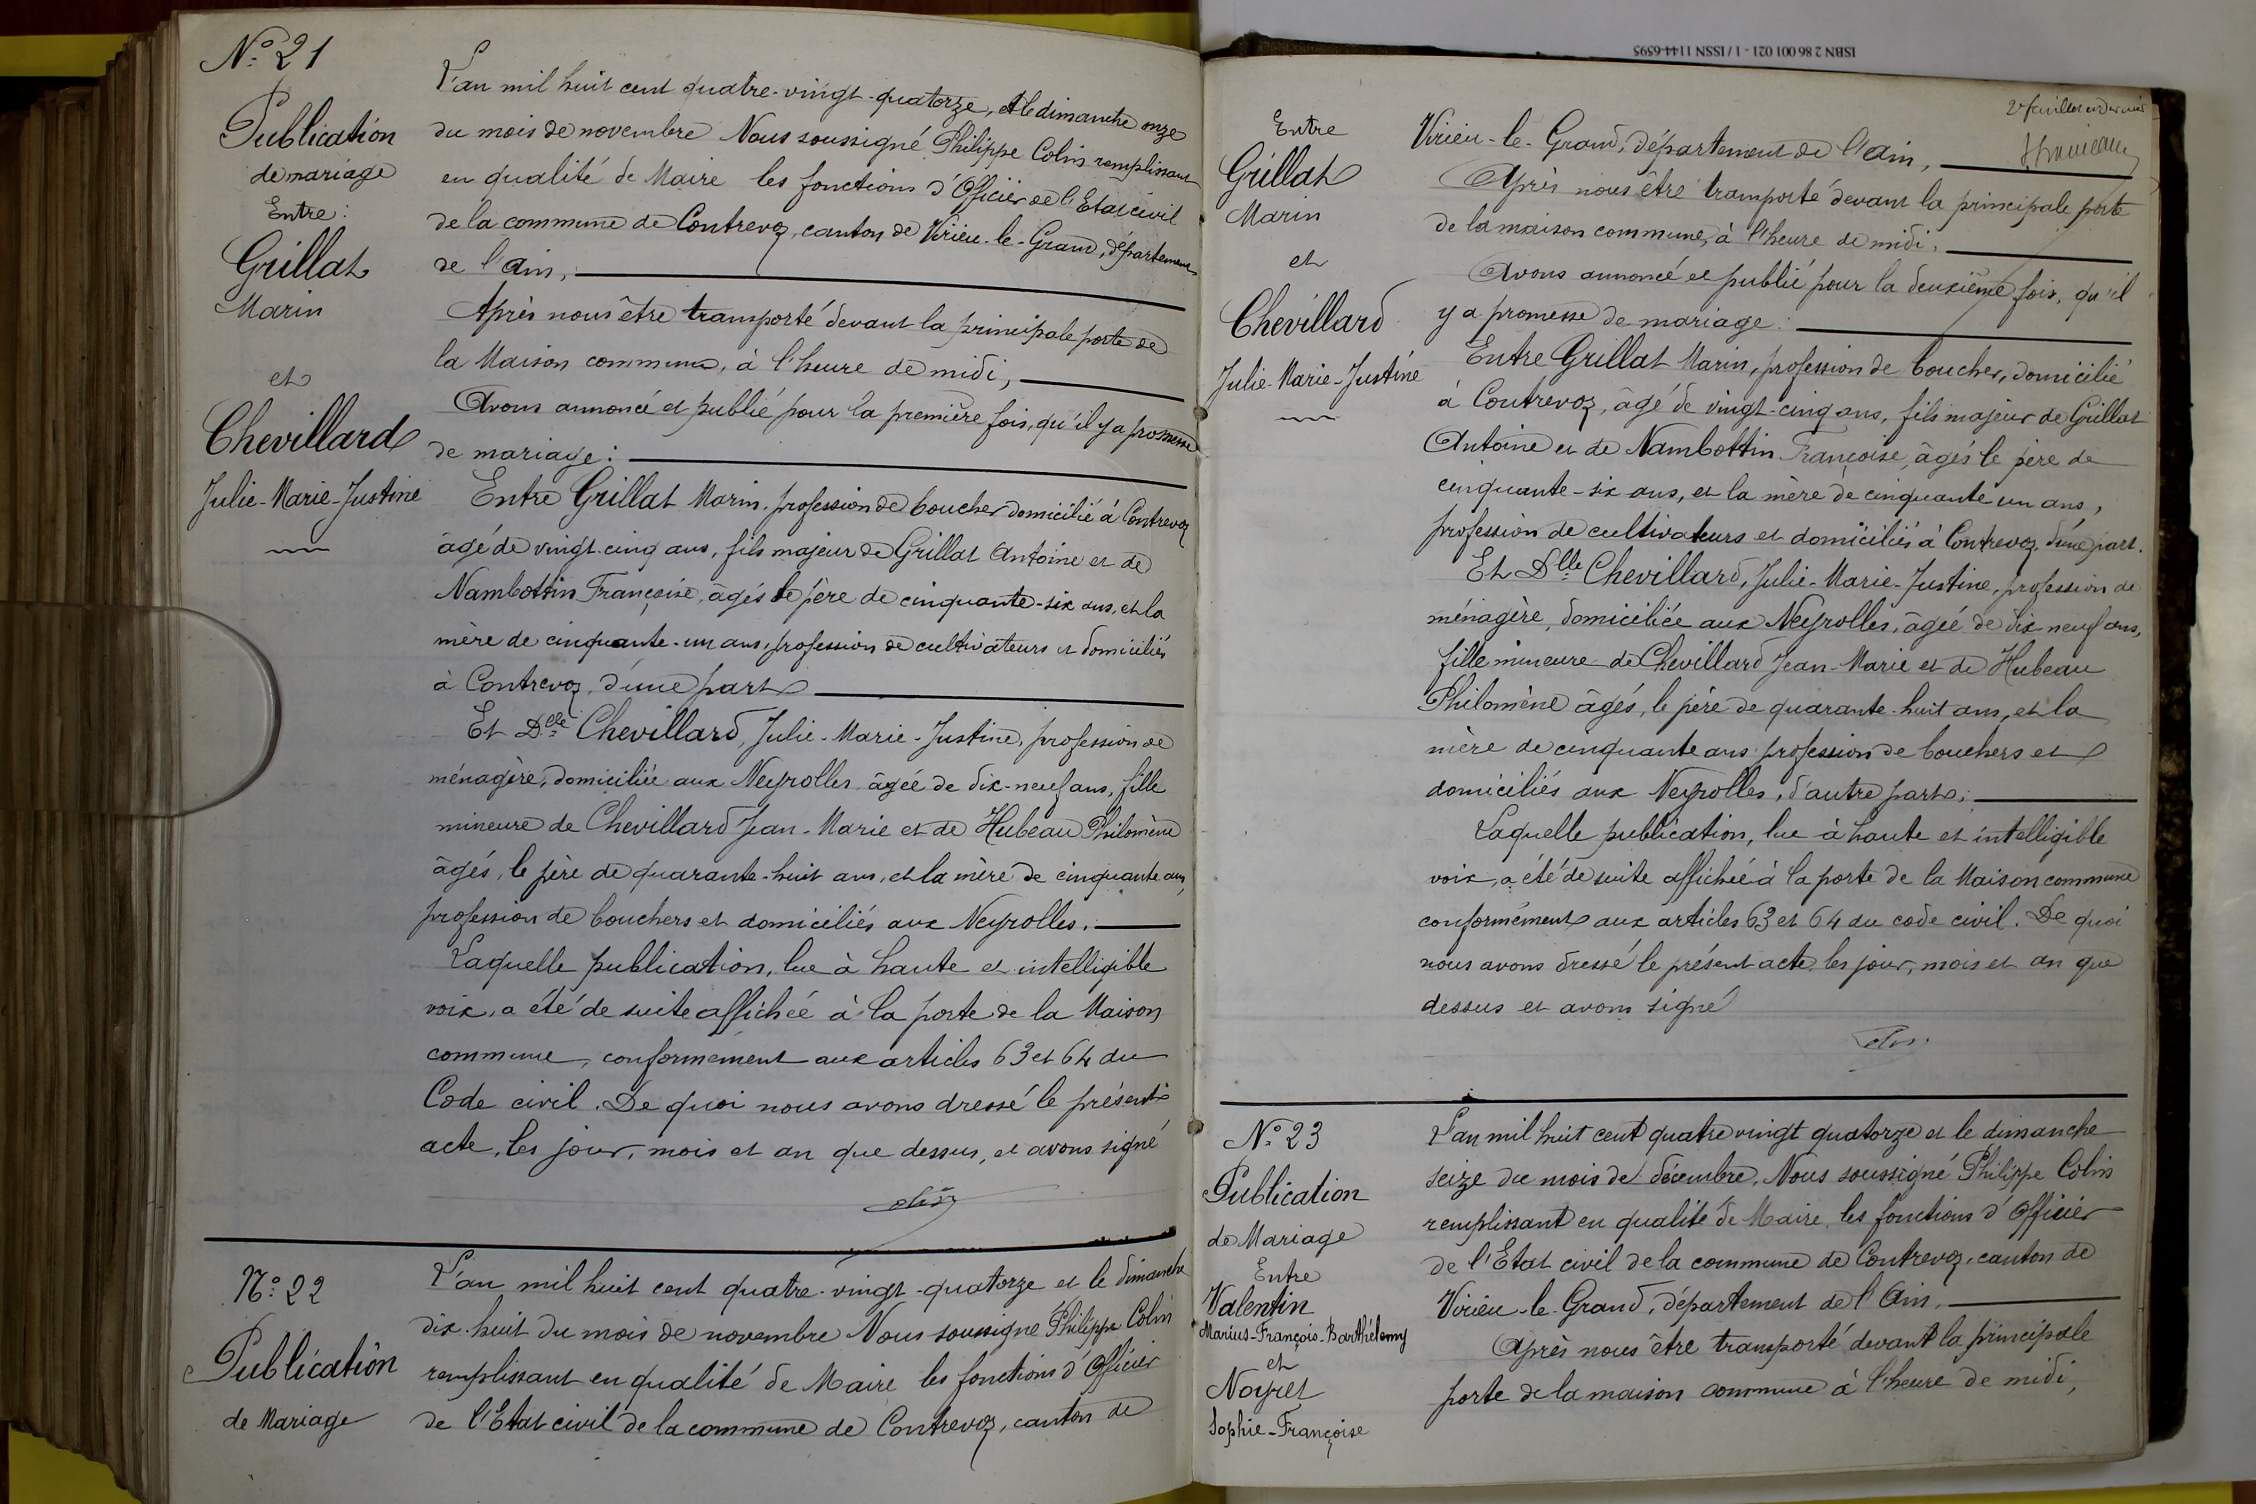 N° 21
Publication
de mariage
Entre :
Grillat
Marin
et
Chevillard
Julie-Marie-Justine
L'an mil huit cent quatre-vingt-quatorze, et le dimanche onze
du mois de novembre Nous soussigné Philippe Colin remplissant
en qualité de Maire les fonctions d'Officier de l'Etat civil
de la commune de Contrevoz, canton de Virieu-le-Grand, département
de l'Ain,
Après nous être transporté devant la principale porte de
la Maison commune, à l'heure de midi,
Avons annoncé et publié pour la première fois, qu'il y a promesse
de mariage :
Entre Grillat Marin, profession de boucher domicilié à Contrevoz
âgé de vingt-cinq ans, fils majeur de Grillat Antoine et de
Nambottin Françoise, âgés le père de cinquante-six ans, et la
mère de cinquante-un ans, profession de cultivateurs et domiciliés
à Contrevoz, d'une part
Et Dlle Chevillard, Julie-Marie-Justine, profession de
ménagère, domiciliée aux Neyrolles âgée de dix-neuf ans, fille
mineure de Chevillard Jean-Marie et de Hubeau Philomène
âgés, le père de quarante-huit ans, et la mère de cinquante ans,
profession de bouchers et domiciliés aux Neyrolles.
Laquelle publication, lue à haute et intelligible
voix, a été de suite affichée à la porte de la Maison
commune, conformément aux articles 63 et 64 du
Code civil. De quoi nous avons dressé le présent
acte, les jour, mois et an que dessus, et avons signé
Colin
N° 22
Publication
de Mariage
L'an mil huit cent quatre-vingt-quatorze et le dimanche
dix-huit du mois de novembre Nous soussigné Philippe Colin
remplissant en qualité de Maire les fonctions d'Officier
de l'Etat civil de la commune de Contrevoz, canton de
ISBN 2 86 001 021 - 1 / ISSN 1144-6595
2e feuillet et dernier
Entre
Grillat
Marin
et
Chevillard
Julie-Marie-Justine
Virieu-le-Grand, département de l'Ain,
Après nous être transporté devant la principale porte
de la maison commune, à l'heure de midi,
Avons annoncé et publié pour la deuxième fois, qu'il
y a promesse de mariage :
Entre Grillat Marin, profession de boucher, domicilié
à Contrevoz, âgé de vingt-cinq ans, fils majeur de Grillat
Antoine et de Nambottin Françoise, âgés le père de
cinquante-six ans, et la mère de cinquante un ans,
profession de cultivateurs et domiciliés à Contrevoz, d'une part.
Et Dlle Chevillard, Julie-Marie-Justine, profession de
ménagère, domiciliée aux Neyrolles, âgée de dix neuf ans,
fille mineure de Chevillard Jean-Marie et de Hubeau
Philomène âgés, le père de quarante-huit ans, et la
mère de cinquante ans profession de bouchers et
domiciliés aux Neyrolles, d'autre part,
Laquelle publication, lue à haute et intelligible
voix, a été de suite affichée à la porte de la Maison commune
conformément aux articles 63 et 64 du code civil. De quoi
nous avons dressé le présent acte les jour, mois et an que
dessus et avons signé
Colin
N° 23
Publication
de Mariage
Entre
Valentin
Marius-François-Barthélemy
et
Noyret
Sophie-Françoise
L'an mil huit cent quatre vingt quatorze et le dimanche
seize du mois de décembre, Nous soussigné Philippe Colin
remplissant en qualité de Maire, les fonctions d'Officier
de l'Etat civil de la commune de Contrevoz, canton de
Virieu-le-Grand, département de l'Ain,
Après nous être transporté devant la principale
porte de la maison commune à l'heure de midi,